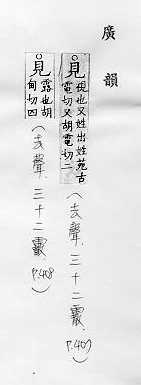 廣韻
○見視也又姓出姓苑古
電切又胡電切二
(去聲.三十二霰 P.407)
○見露也胡
甸切四
(去聲.三十二霰 P.408)